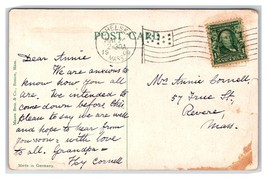 CHELSEA
POST CARD
MASS.
Dear Annie
We are anxious to
know how you all
are. We intended to
come down before this
please to say we are well
and hope to hear from
you soon, with love
to all. Grandpa
Cornell
Mrs Annie Cornell,
57 True St,
Revere
Mass.
Made in Germany.